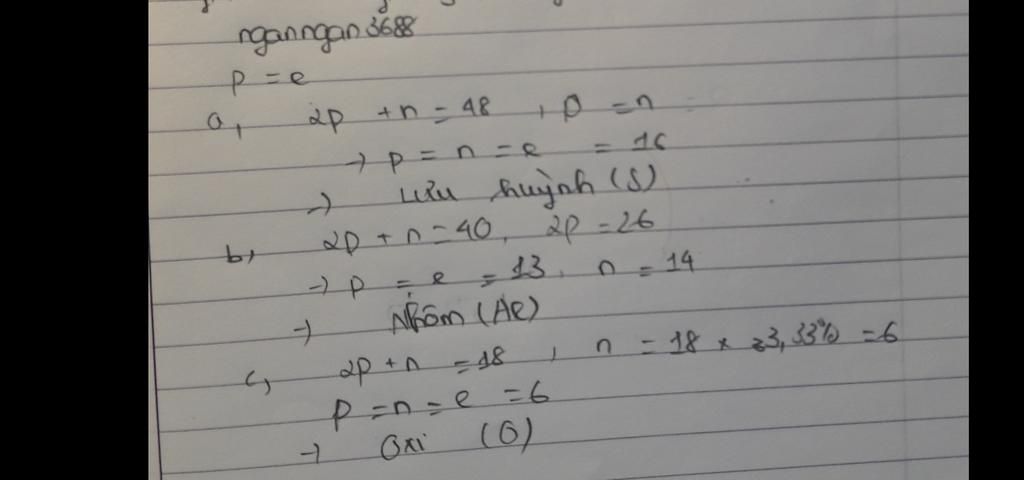 nganngan3688
p = e
a, 2p + n = 48 , p = n
→ p = n = e = 16
→ Lưu huỳnh (S)
b, 2p + n = 40, 2p = 26
→ p = e = 13, n = 14
→ Nhôm (Al)
c, 2p + n = 18 , n = 18 × 33,33% = 6
p = n = e = 6
→ Oxi (O)